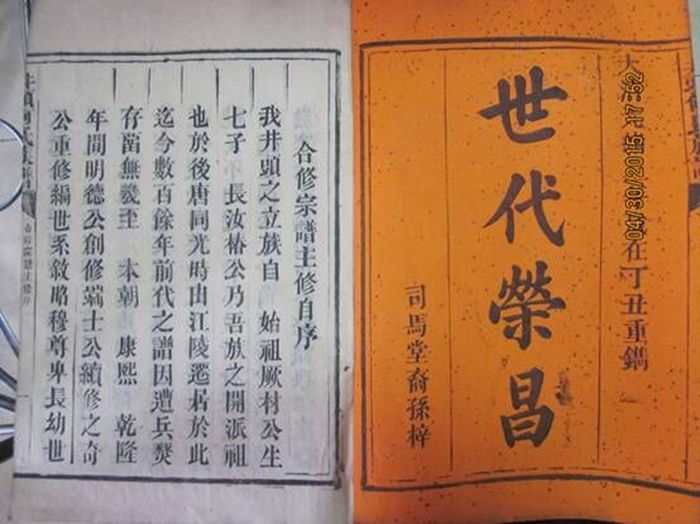 大 在丁丑重鐫
世代榮昌
司馬堂裔孫梓
04/30/2015 17:52
合修宗譜主修自序
我井頭之立族自 始祖厥村公生
七子 長汝椿公乃吾族之開派祖
也於後唐同光時由江陵遷居於此
迄今數百餘年前代之譜因遭兵燹
存畱無幾至 本朝 康熙 乾隆
年間明德公創修端士公續修之奇
公重修編世系敘昭穆尊卑長幼世